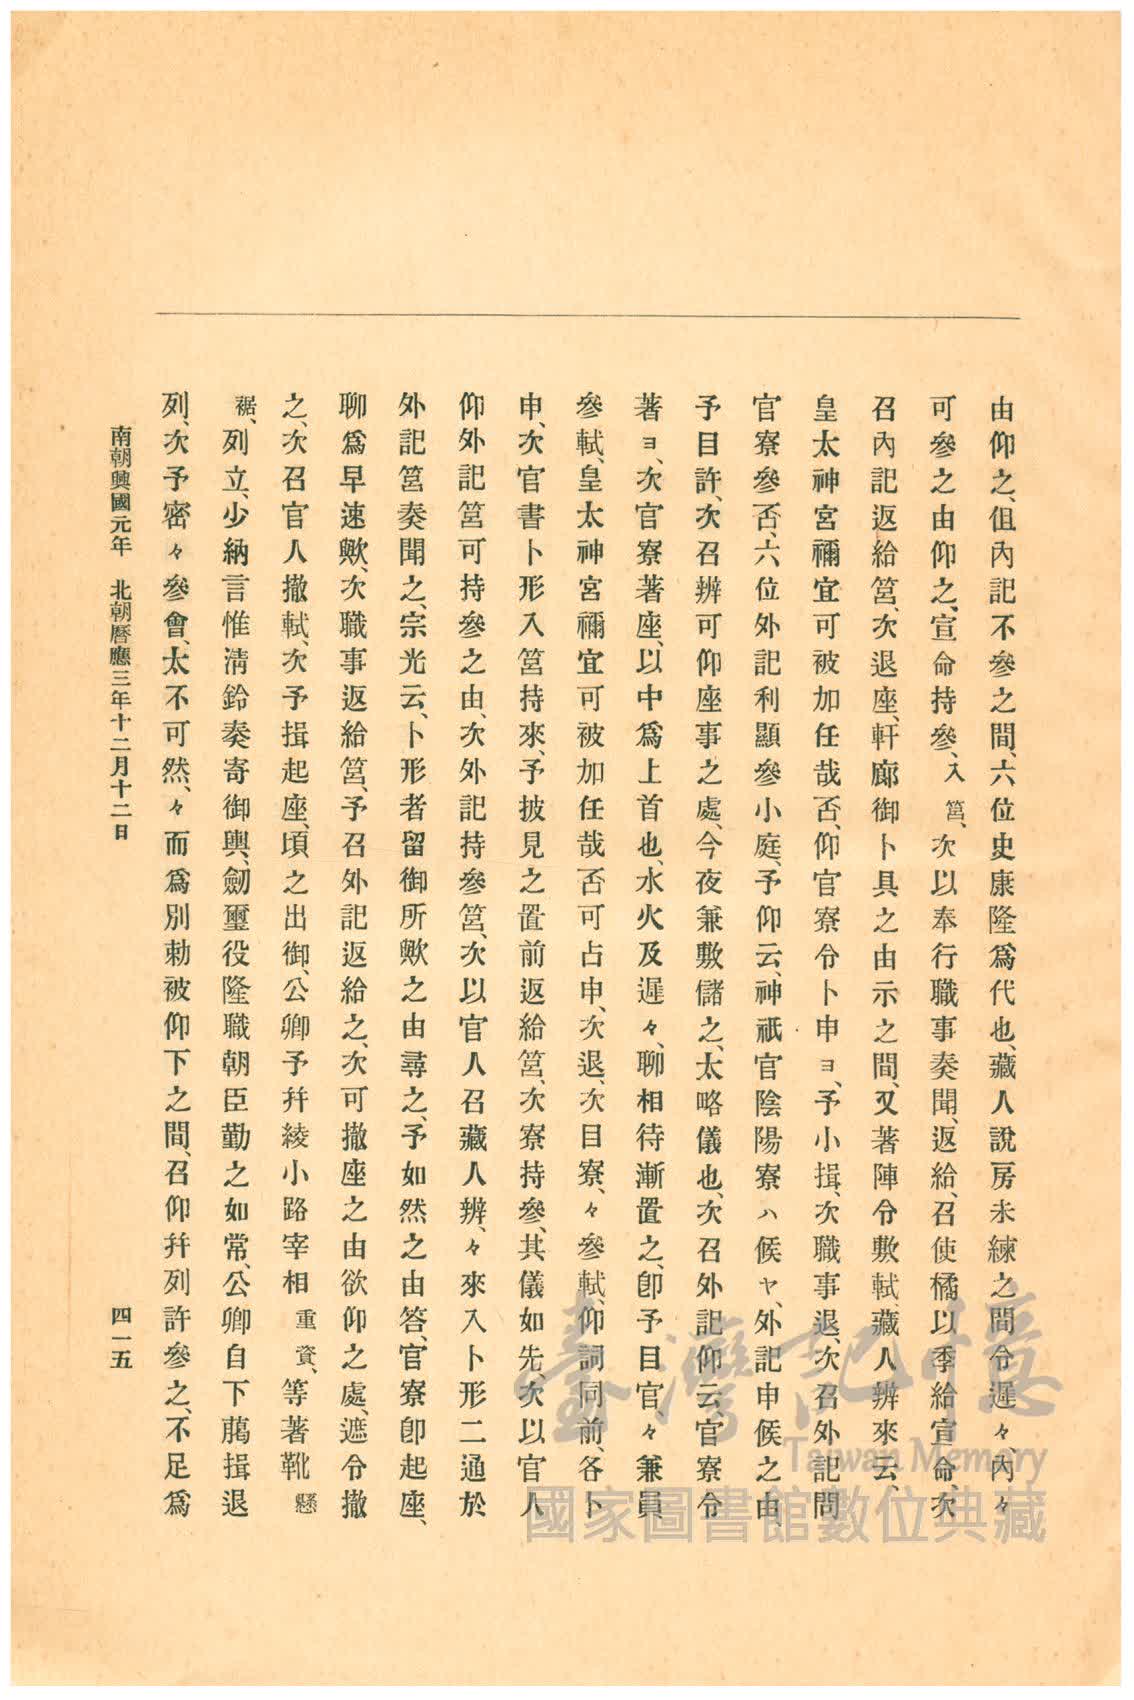 由仰之、但內記不參之間、六位史康隆爲代也、藏人說房未練之間令遲々、內々
可參之由仰之、宣命持參、入筥、次以奉行職事奏聞、返給、召使橘以季給宣命、次
召內記返給筥、次退座、軒廊御卜具之由示之間、又著陣令敷軾、藏人辨來云、
皇太神宮禰宜可被加任哉否、仰官寮令卜申ヨ、予小揖、次職事退、次召外記問
官寮參否、六位外記利顯參小庭、予仰云、神祇官陰陽寮ハ候ヤ、外記申候之由、
予目許、次召辨可仰座事之處、今夜兼敷儲之、太略儀也、次召外記仰云、官寮令
著ヨ、次官寮著座、以中爲上首也、水火及遲々、聊相待漸置之、卽予目官、々兼員
參軾、皇太神宮禰宜可被加任哉否可占申、次退、次目寮、々參軾、仰詞同前、各卜
申、次官書卜形入筥持來、予披見之置前返給筥、次寮持參、其儀如先、次以官人
仰外記筥可持參之由、次外記持參筥、次以官人召藏人辨、々來入卜形二通於
外記筥奏聞之、宗光云、卜形者留御所歟之由尋之、予如然之由答、官寮卽起座、
聊爲早速歟、次職事返給筥、予召外記返給之、次可撤座之由欲仰之處、遮令撤
之、次召官人撤軾、次予揖起座、頃之出御、公卿予幷綾小路宰相重資、等著靴懸
裾、列立、少納言惟淸鈴奏寄御輿、劒璽役隆職朝臣勤之如常、公卿自下﨟揖退
列、次予密々參會、太不可然、々而爲別勅被仰下之間、召仰幷列許參之、不足爲
南朝興國元年 北朝曆應三年十二月十二日
四一五
臺灣記憶
Taiwan Memory
國家圖書館數位典藏